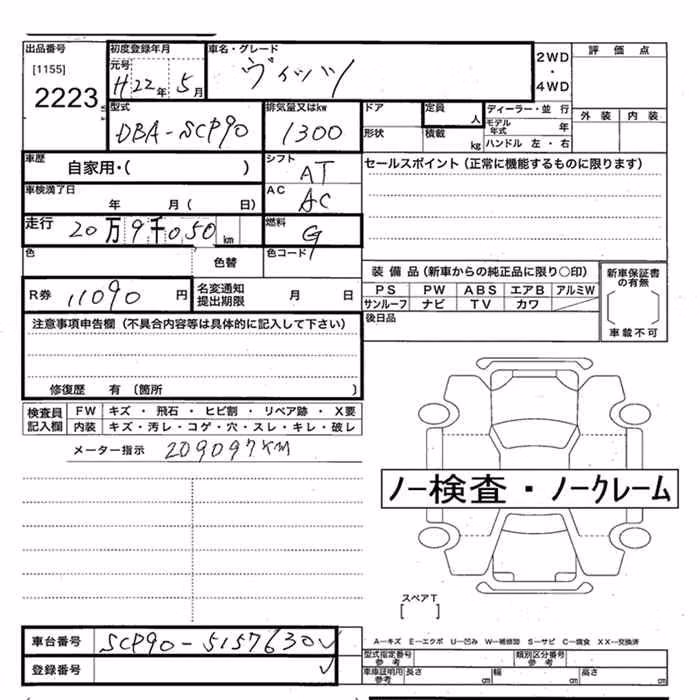 出品番号 初度登録年月 車名・グレード 2WD・4WD 評価点
[1155] 元号 H22年 5月 ヴィッツ
2223
型式 排気量又はkw ドア 定員 人 ディーラー・並行 外装 内装
DBA-SCP90 1300 形状 積載 kg モデル年式 年
ハンドル 左・右
車歴 自家用・( ) シフト AT セールスポイント(正常に機能するものに限ります)
車検満了日 年 月( 日) AC AC
走行 20万9千050km 燃料 G
色 色替 色コード
装備品(新車からの純正品に限り○印) 新車保証書の有無
R券 11090円 名変通知提出期限 月 日 PS PW ABS エアB アルミW
サンルーフ ナビ TV カワ
〔 〕
注意事項申告欄(不具合内容等は具体的に記入して下さい) 後日品 車載不可
修復歴 有 〔箇所 〕
検査員記入欄 FW キズ・飛石・ヒビ割・リペア跡・X要
内装 キズ・汚レ・コゲ・穴・スレ・キレ・破レ
メーター指示 209097KM
ノー検査・ノークレーム
スペアT
[ ]
車台番号 SCP90-5157630
A―キズ E―エクボ U―凹み W―補修跡 S―サビ C―腐食 XX―交換済
登録番号 型式指定番号 参考 類別区分番号 参考
車庫証明用 参考 長さ cm 幅 cm 高さ cm